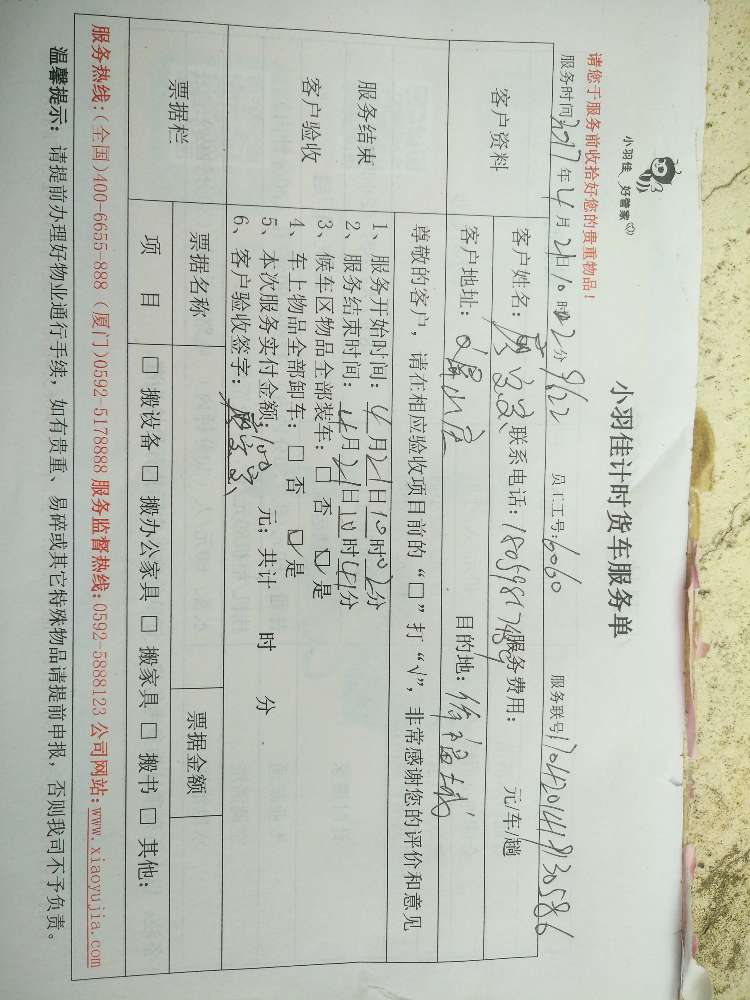 小羽佳 好管家
小羽佳计时货车服务单
请您于服务前收拾好您的贵重物品!
服务时间: 2017年4月21日10时02分 9/22 员工工号: 6060 服务联号 170420141813 0586
客户资料
客户姓名: 联系电话: 服务费用: 元/车/趟
客户地址: 目的地:
尊敬的客户, 请在相应验收项目前的“□”打“√”, 非常感谢您的评价和意见
服务结束
客户验收
1、服务开始时间: 4月21日10时02分
2、服务结束时间: 4月21日10时41分
3、候车区物品全部装车: □ 否 □ 是
4、车上物品全部卸车: □ 否 □ 是
5、本次服务实付金额: 100 元; 共计 时 分
6、客户验收签字:
票据栏
票据名称 票据金额
项 目 □ 搬设备 □ 搬办公家具 □ 搬家具 □ 搬书 □ 其他:
服务热线: (全国)400-6655-888 (厦门)0592-5178888 服务监督热线: 0592-5888123 公司网站: www.xiaoyujia.com
温馨提示: 请提前办理好物业通行手续, 如有贵重、易碎或其它特殊物品请提前申报, 否则我司不予负责。